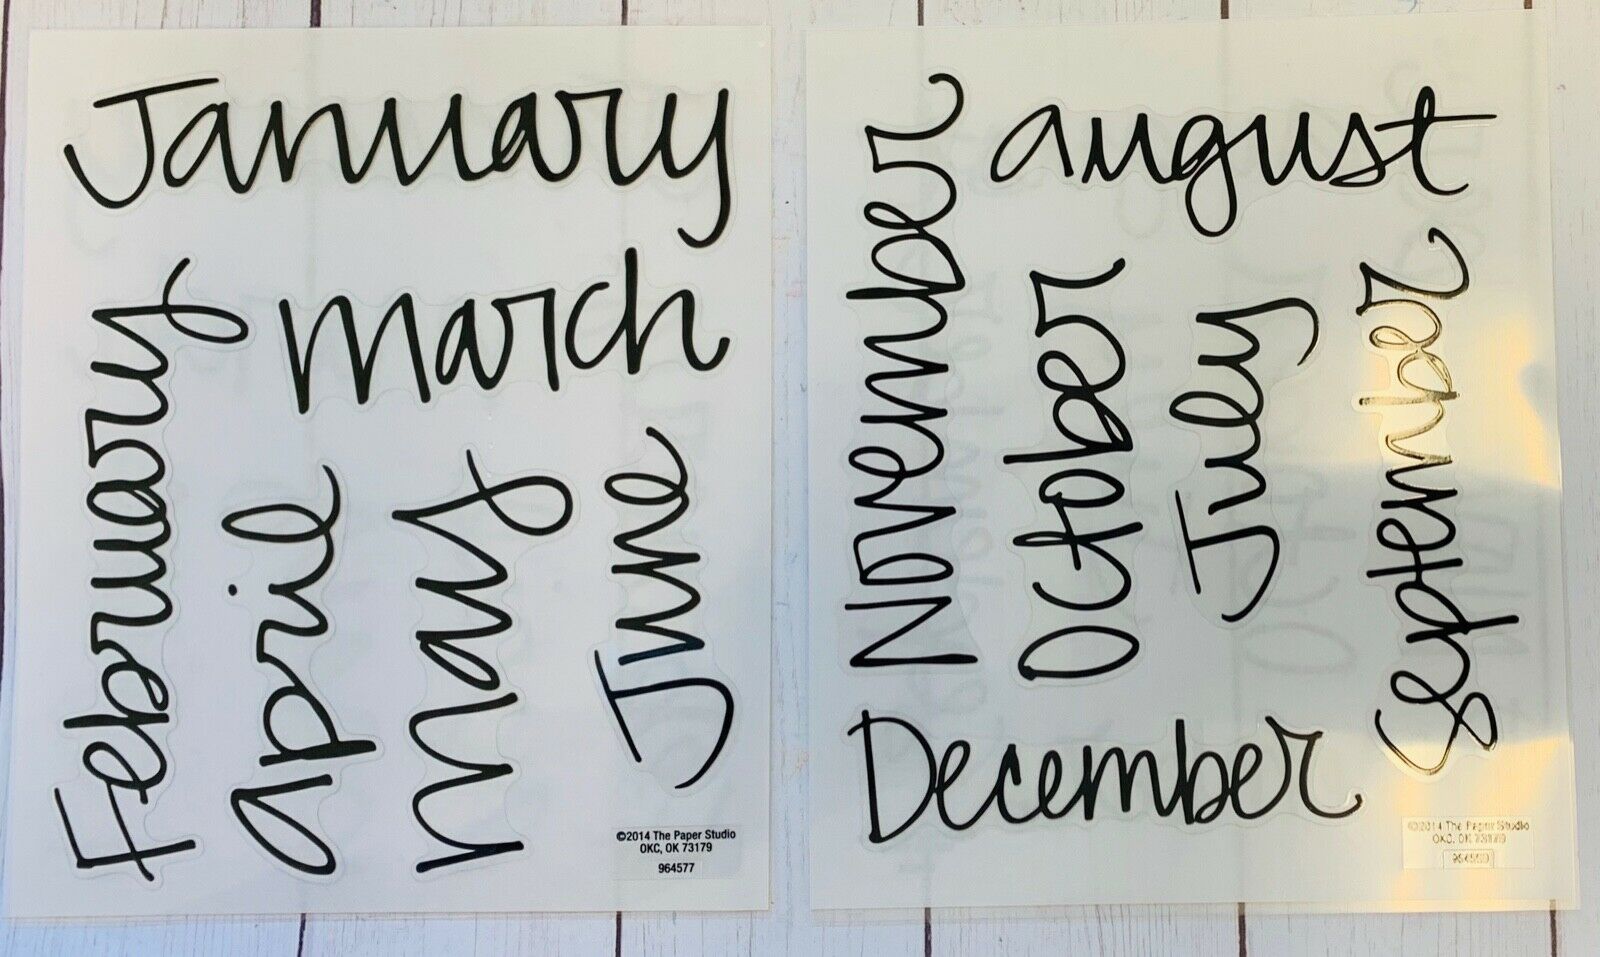 January
February
march
april
may
June
©2014 The Paper Studio
OKC, OK 73179
964577
November
august
October
July
September
December
©2014 The Paper Studio
OKC, OK 73179